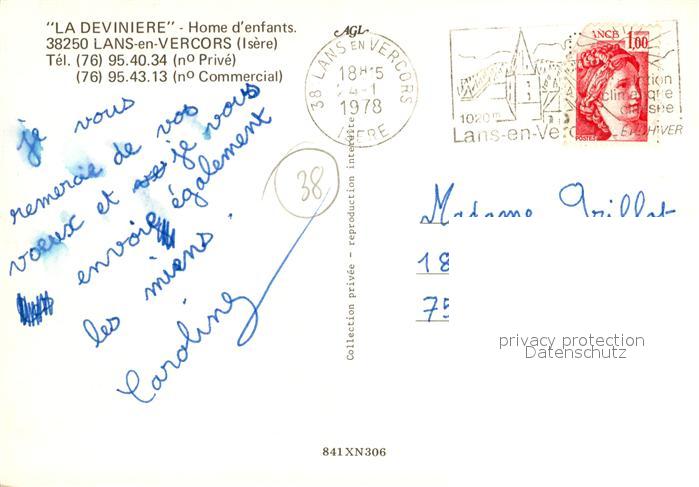 "LA DEVINIERE" - Home d'enfants.
38250 LANS-en-VERCORS (Isère)
Tél. (76) 95.40.34 (nº Privé)
(76) 95.43.13 (nº Commercial)
AGL
38 LANS EN VERCORS
18H15
24-1
1978
ISERE
1020m
Lans-en-Verc
station
climatique
classée
ETE HIVER
ANCE
1,00
POSTES
je vous
remercie de vos
voeux et je vous
envoie également
les miens.
Caroline
38
Collection privée - reproduction interdite
Madame Grillat
18
75
privacy protection
Datenschutz
841XN306